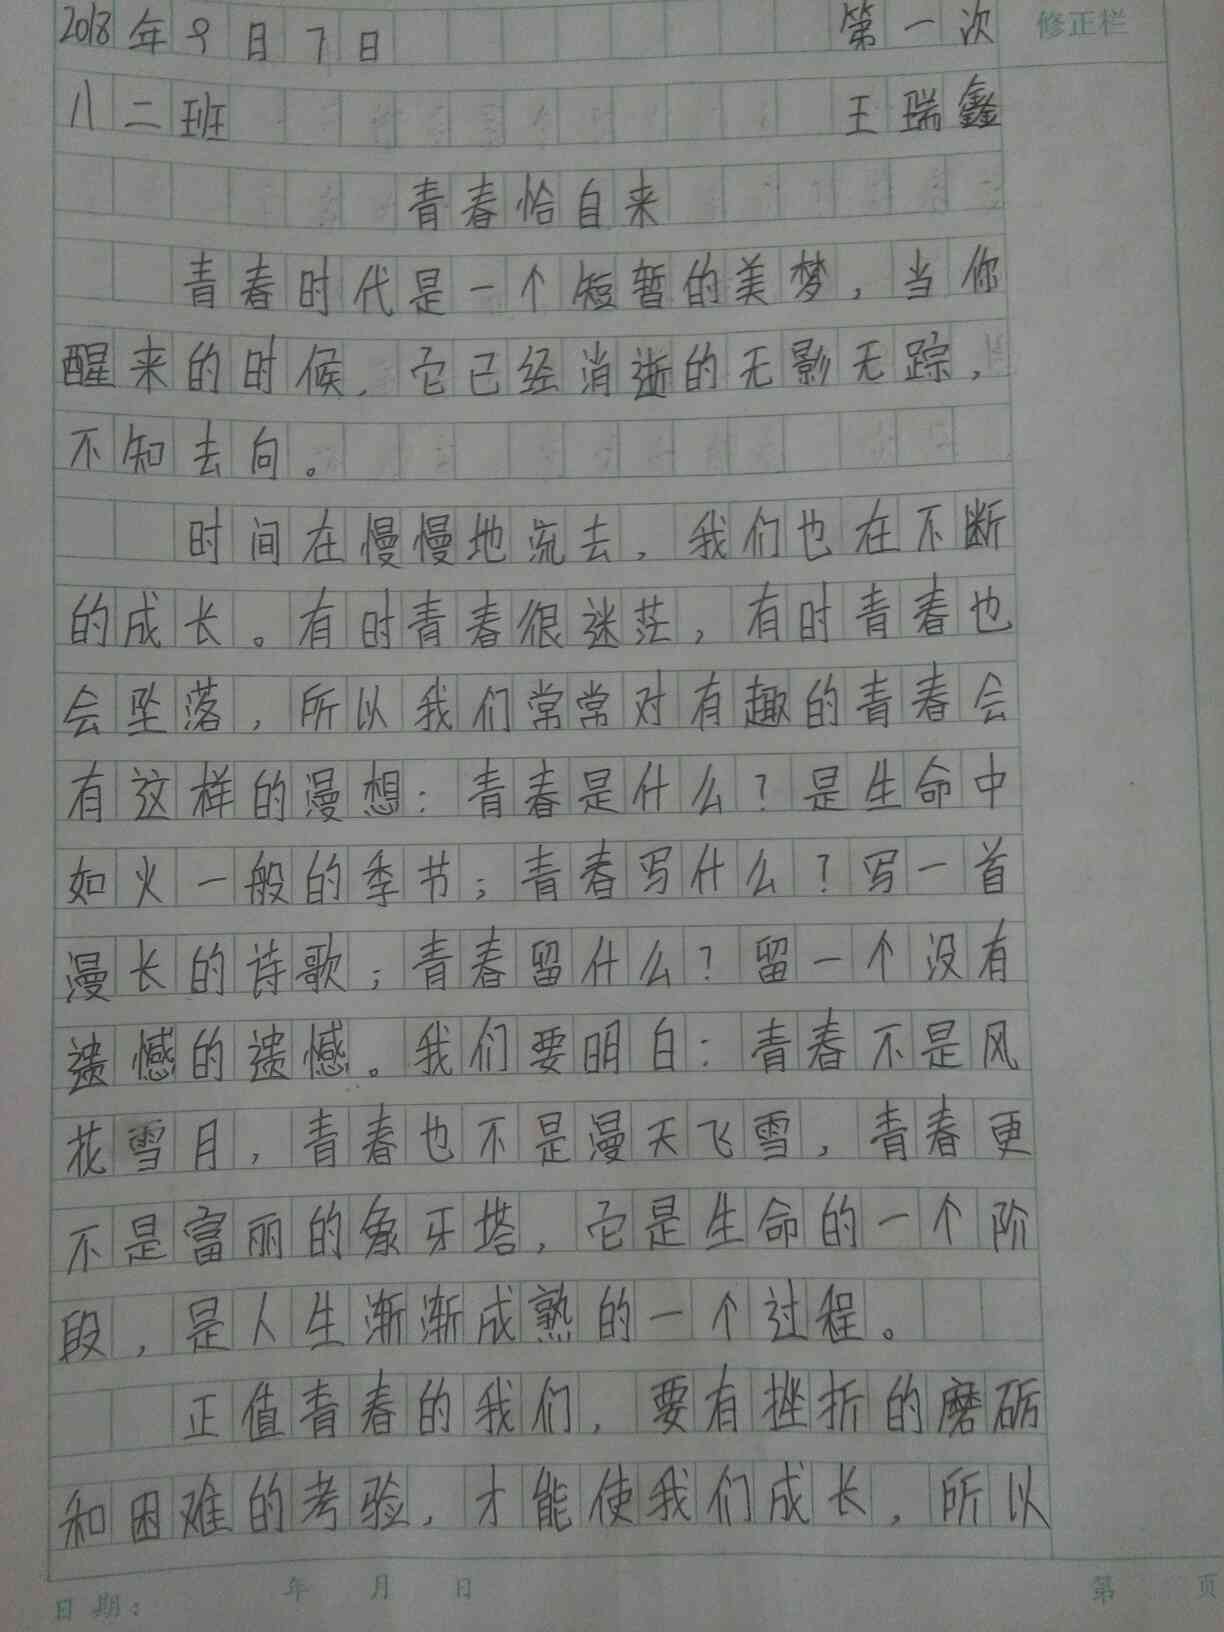 2018年9月7日 第一次 修正栏
八二班 王瑞鑫
青春恰自来
青春时代是一个短暂的美梦,当你
醒来的时候,它已经消逝的无影无踪,
不知去向。
时间在慢慢地流去,我们也在不断
的成长。有时青春很迷茫,有时青春也
会坠落,所以我们常常对有趣的青春会
有这样的漫想:青春是什么?是生命中
如火一般的季节;青春写什么?写一首
漫长的诗歌;青春留什么?留一个没有
遗憾的遗憾。我们要明白:青春不是风
花雪月,青春也不是漫天飞雪,青春更
不是富丽的象牙塔,它是生命的一个阶
段,是人生渐渐成熟的一个过程。
正值青春的我们,要有挫折的磨砺
和困难的考验,才能使我们成长,所以
日期: 年 月 日 第 页